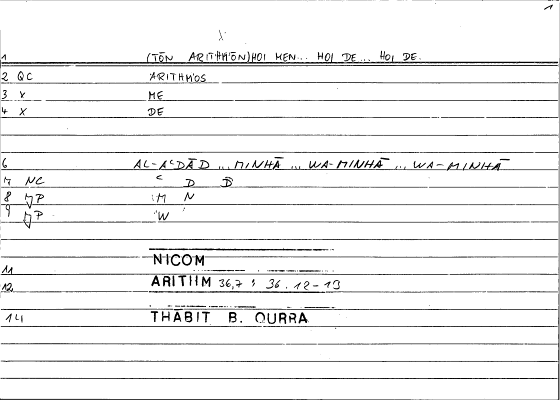 1
1 (TŌN ARITHMŌN) HOI MEN... HOI DE... HOI DE.
2 QC ARITHMOS
3 X ME
4 X DE
6 AL-AʿDĀD ... MINHĀ ... WA-MINHĀ ... WA-MINHĀ
7 NC ʿ D D
8 P M N
9 P W
11 NICOM
12 ARITIIM 36,7 ; 36.12-13
14 THĀBIT B. QURRA